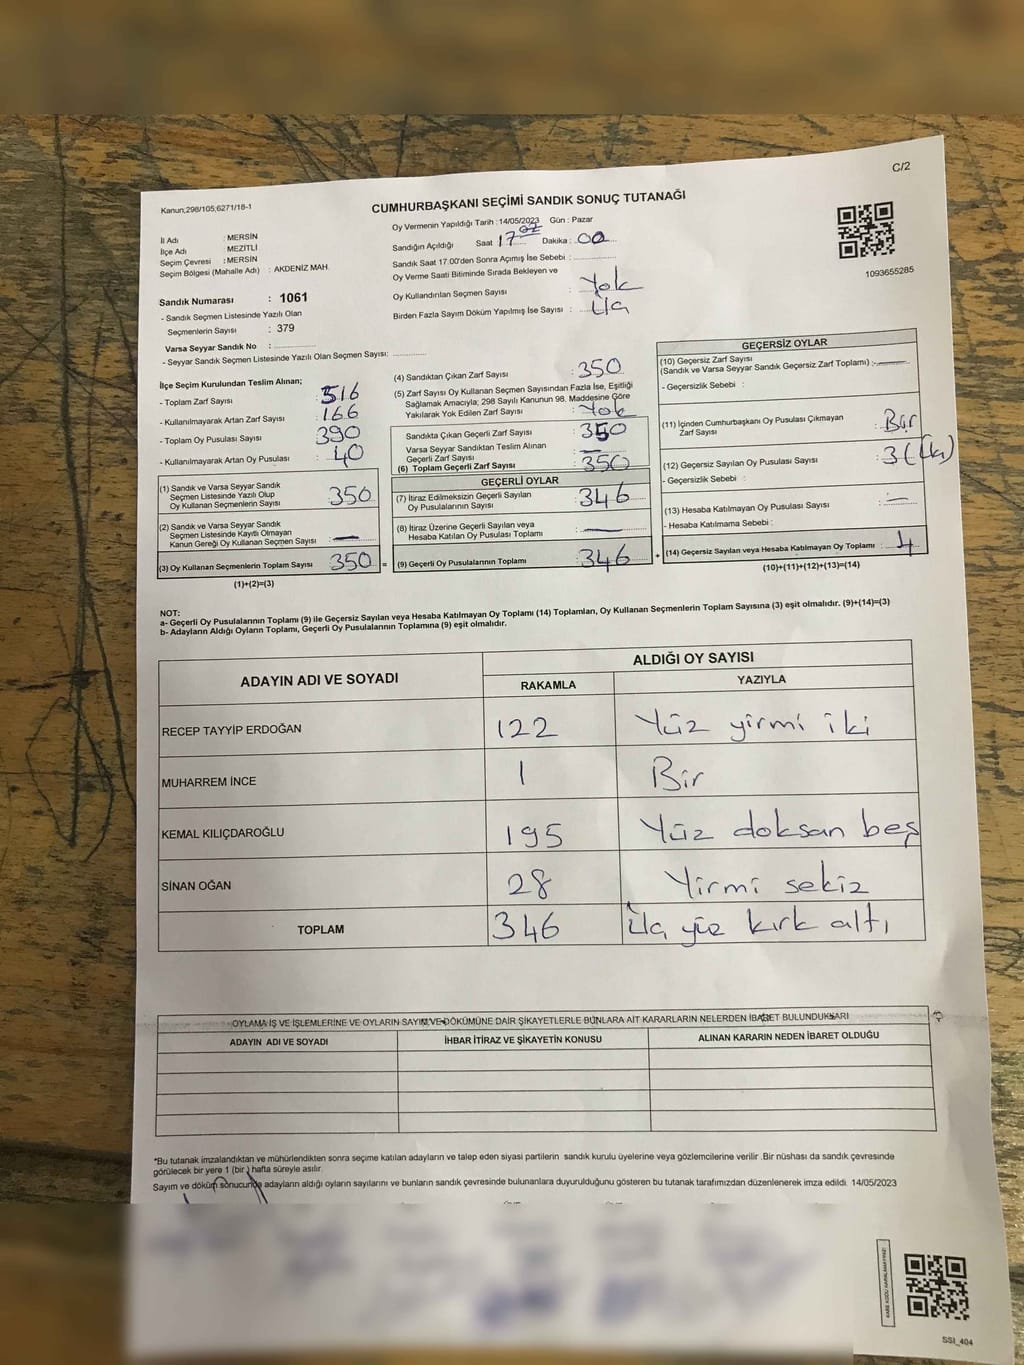 C/2
Kanun;298/105;6271/18-1
CUMHURBAŞKANI SEÇİMİ SANDIK SONUÇ TUTANAĞI
İl Adı : MERSİN
İlçe Adı : MEZİTLİ
Seçim Çevresi : MERSİN
Seçim Bölgesi (Mahalle Adı) : AKDENİZ MAH.
Sandık Numarası : 1061
- Sandık Seçmen Listesinde Yazılı Olan
Seçmenlerin Sayısı : 379
Varsa Seyyar Sandık No : ..............
- Seyyar Sandık Seçmen Listesinde Yazılı Olan Seçmen Sayısı: ..............
Oy Vermenin Yapıldığı Tarih :14/05/2023 Gün : Pazar
Sandığın Açıldığı Saat 17 Dakika : 00
Sandık Saat 17.00'den Sonra Açımış İse Sebebi : ..............
Oy Verme Saati Bitiminde Sırada Bekleyen ve
Oy Kullandırılan Seçmen Sayısı : Yok
Birden Fazla Sayım Döküm Yapılmış İse Sayısı :
1093655285
İlçe Seçim Kurulundan Teslim Alınan;
- Toplam Zarf Sayısı : 516
- Kullanılmayarak Artan Zarf Sayısı : 166
- Toplam Oy Pusulası Sayısı : 390
- Kullanılmayarak Artan Oy Pusulası : 40
(1) Sandık ve Varsa Seyyar Sandık
Seçmen Listesinde Yazılı Olup
Oy Kullanan Seçmenlerin Sayısı : 350
(2) Sandık ve Varsa Seyyar Sandık
Seçmen Listesinde Kayıtlı Olmayan
Kanun Gereği Oy Kullanan Seçmen Sayısı : —
(3) Oy Kullanan Seçmenlerin Toplam Sayısı : 350 =
(1)+(2)=(3)
(4) Sandıktan Çıkan Zarf Sayısı : 350
(5) Zarf Sayısı Oy Kullanan Seçmen Sayısından Fazla İse, Eşitliği
Sağlamak Amacıyla; 298 Sayılı Kanunun 98. Maddesine Göre
Yakılarak Yok Edilen Zarf Sayısı : Yok
Sandıkta Çıkan Geçerli Zarf Sayısı : 350
Varsa Seyyar Sandıktan Teslim Alınan
Geçerli Zarf Sayısı : —
(6) Toplam Geçerli Zarf Sayısı : 350
GEÇERLİ OYLAR
(7) İtiraz Edilmeksizin Geçerli Sayılan
Oy Pusulalarının Sayısı : 346
(8) İtiraz Üzerine Geçerli Sayılan veya
Hesaba Katılan Oy Pusulası Toplamı : —
(9) Geçerli Oy Pusulalarının Toplamı : 346 +
GEÇERSİZ OYLAR
(10) Geçersiz Zarf Sayısı
(Sandık ve Varsa Seyyar Sandık Geçersiz Zarf Toplamı) : —
- Geçersizlik Sebebi :
(11) İçinden Cumhurbaşkanı Oy Pusulası Çıkmayan
Zarf Sayısı : Bir
(12) Geçersiz Sayılan Oy Pusulası Sayısı : 3 (üç)
- Geçersizlik Sebebi :
(13) Hesaba Katılmayan Oy Pusulası Sayısı : —
- Hesaba Katılmama Sebebi :
(14) Geçersiz Sayılan veya Hesaba Katılmayan Oy Toplamı : 4
(10)+(11)+(12)+(13)=(14)
NOT:
a- Geçerli Oy Pusulalarının Toplamı (9) ile Geçersiz Sayılan veya Hesaba Katılmayan Oy Toplamı (14) Toplamları, Oy Kullanan Seçmenlerin Toplam Sayısına (3) eşit olmalıdır. (9)+(14)=(3)
b- Adayların Aldığı Oyların Toplamı, Geçerli Oy Pusulalarının Toplamına (9) eşit olmalıdır.
ADAYIN ADI VE SOYADI ALDIĞI OY SAYISI
RAKAMLA YAZIYLA
RECEP TAYYİP ERDOĞAN 122 Yüz yirmi iki
MUHARREM İNCE 1 Bir
KEMAL KILIÇDAROĞLU 195 Yüz doksan beş
SİNAN OĞAN 28 Yirmi sekiz
TOPLAM 346 üç yüz kırk altı
OYLAMA İŞ VE İŞLEMLERİNE VE OYLARIN SAYIM VE DÖKÜMÜNE DAİR ŞİKAYETLERLE BUNLARA AİT KARARLARIN NELERDEN İBARET BULUNDUKLARI
ADAYIN ADI VE SOYADI İHBAR İTİRAZ VE ŞİKAYETİN KONUSU ALINAN KARARIN NEDEN İBARET OLDUĞU
*Bu tutanak imzalandıktan ve mühürlendikten sonra seçime katılan adayların ve talep eden siyasi partilerin sandık kurulu üyelerine veya gözlemcilerine verilir .Bir nüshası da sandık çevresinde
görülecek bir yere 1 (bir ) hafta süreyle asılır.
Sayım ve döküm sonucunda adayların aldığı oyların sayılarını ve bunların sandık çevresinde bulunanlara duyurulduğunu gösteren bu tutanak tarafımızdan düzenlenerek imza edildi. 14/05/2023
SSI_404